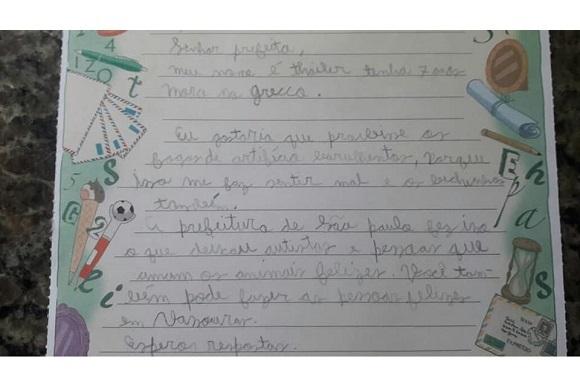 Senhor prefeito,
meu nome é tenho 7 anos
moro na grecco.
Eu gostaria que os
fogos de artifício barulhentos, porque
isso me faz sentir mal e os bichinhos
também.
A prefeitura de São paulo fez isso
o que deixou autistas e pessoas que
amam os animais felizes. Você tam-
bém pode fazer as pessoas felizes
em Vassouras.
Espero respostas.